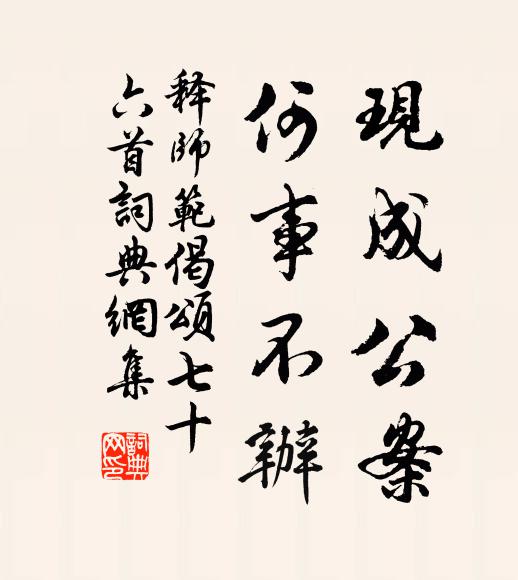 現成公案
何事不辦
释師範偈頌七十
六首詞典網集
詞典
网印